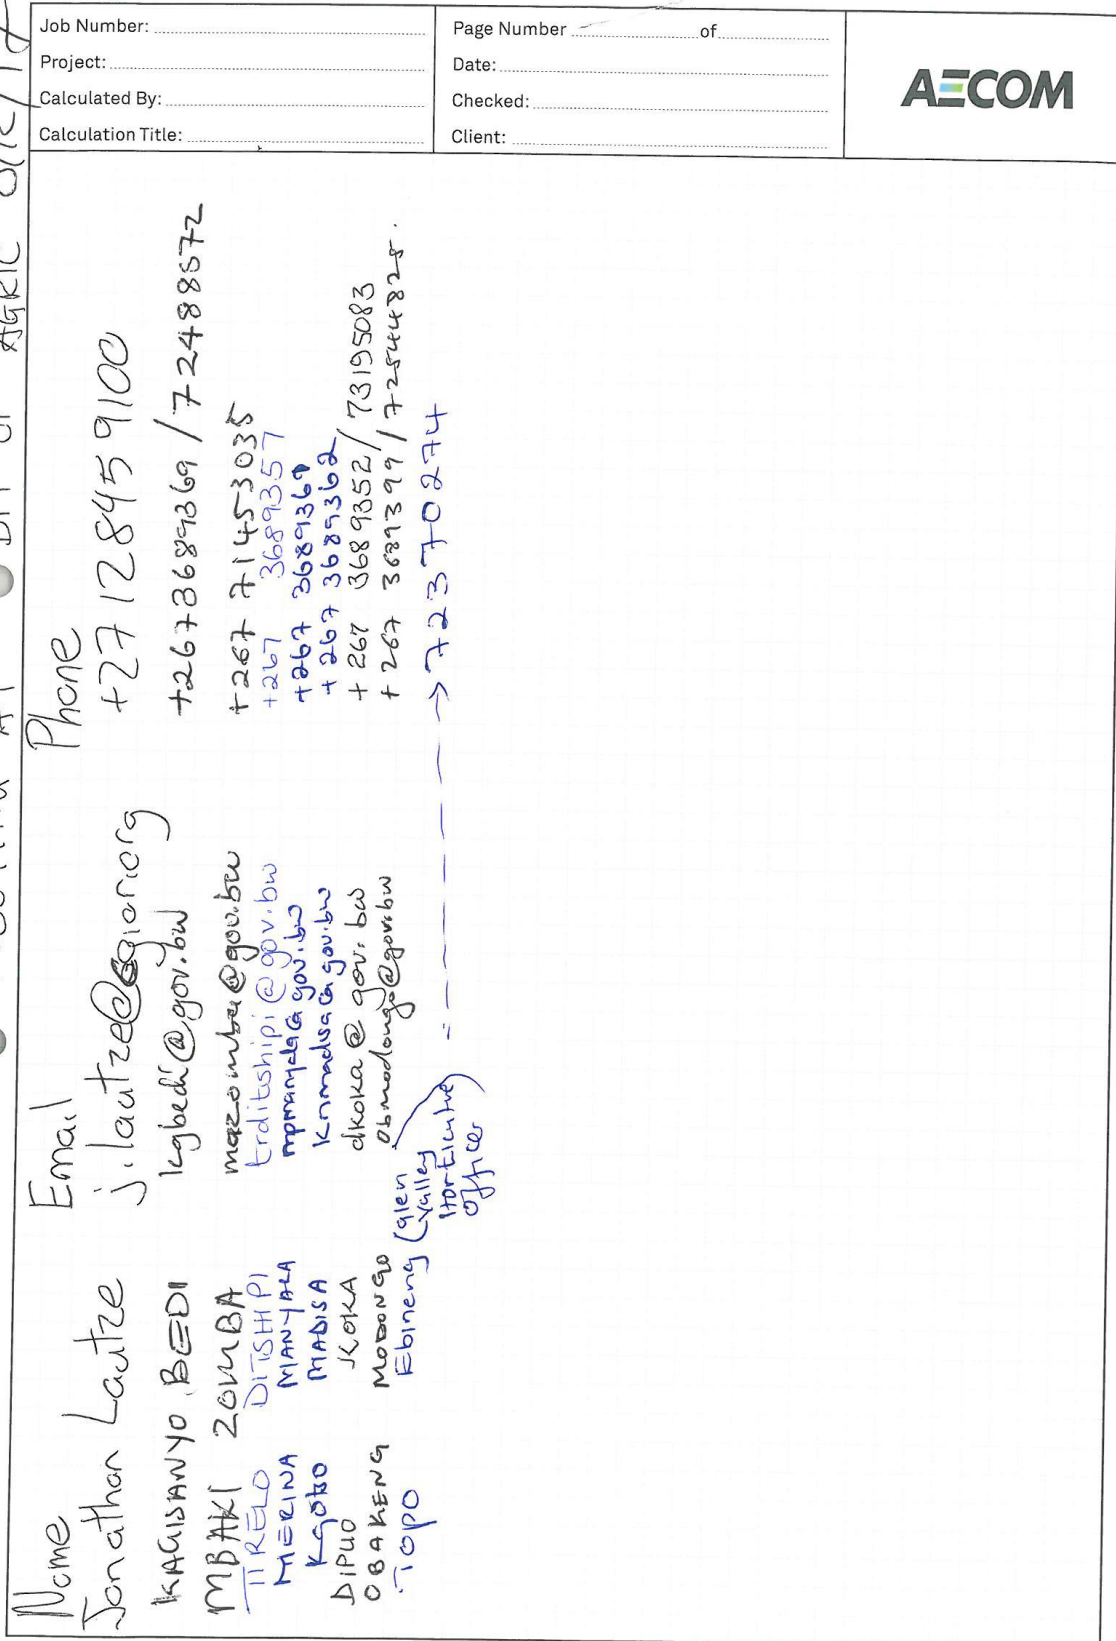 Job Number:
Project:
Calculated By:
Calculation Title:
Page Number of
Date:
Checked:
Client:
AECOM
AGRIC
Name Email Phone
Jonathan Lautze j.lautze@cgiar.org +27128459100
KAGISANYO BEDI kgbedi@gov.bw +2673689369 / 72488572
MBAKI ZOMBA mazomba@gov.bw +267 71453035
TIRELO DITSHIPI trditshipi@gov.bw +267 3689357
MERINA MANYALA mpmanyala@gov.bw +267 3689360
Kgobo MADISA knmadisa@gov.bw +267 3689362
DIPUO KOKA dkoka@gov.bw +267 3689352 / 73195083
OBAKENG MODONGO obmodongo@gov.bw +267 3689399 / 72544825.
TOPO Ebineng (Glen Valley Horticulture Officer) 72370274